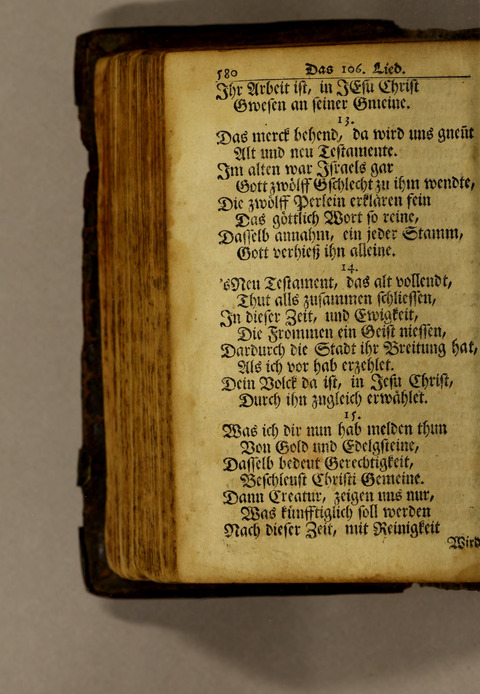 580 Das 106. Lied.
Ihr Arbeit ist, in JEsu Christ
Gwesen an seiner Gmeine.
13.
Das merck behend, da wird uns gneñt
Alt und neu Testamente.
Im alten war Israels gar
Gott zwölff Gschlecht zu ihm wendte,
Die zwölff Perlein erklären fein
Das göttlich Wort so reine,
Dasselb annahm, ein jeder Stamm,
Gott verhieß ihn alleine.
14.
'sNeu Testament, das alt vollendt,
Thut alls zusammen schliessen,
In dieser Zeit, und Ewigkeit,
Die Frommen ein Geist niessen,
Dardurch die Stadt ihr Breitung hat,
Als ich vor hab erzehlet.
Dein Volck da ist, in Jesu Christ,
Durch ihn zugleich erwählet.
15.
Was ich dir nun hab melden thun
Von Gold und Edelgsteine,
Dasselb bedeut Gerechtigkeit,
Beschleust Christi Gemeine.
Dann Creatur, zeigen uns nur,
Was künfftiglich soll werden
Nach dieser Zeit, mit Reinigkeit
Wird